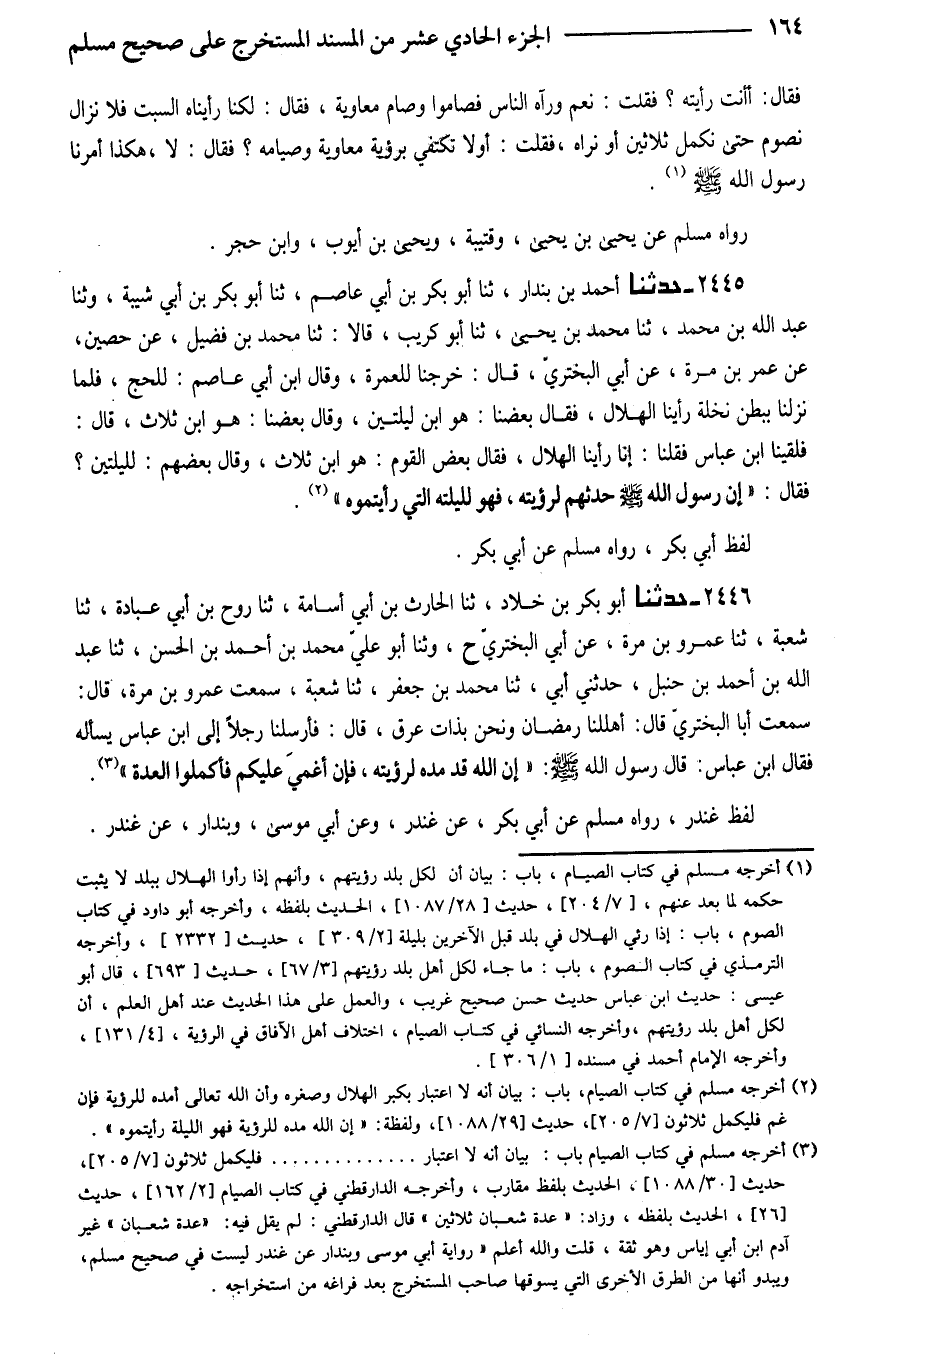 ١٦٤ ——— الجزء الحادي عشر من المسند المستخرج على صحيح مسلم
فقال: أأنت رأيته ؟ فقلت : نعم ورآه الناس فصاموا وصام معاوية ، فقال : لكنا رأيناه السبت فلا نزال
نصوم حتى نكمل ثلاثين أو نراه ،فقلت : أولا تكتفي برؤية معاوية وصيامه ؟ فقال : لا ،هكذا أمرنا
رسول الله ﷺ (١) .
رواه مسلم عن يحيى بن يحيى ، وقتيبة ، ويحيى بن أيوب ، وابن حجر .
٢٤٤٥ـ حدثنا أحمد بن بندار ، ثنا أبو بكر بن أبي عاصم ، ثنا أبو بكر بن أبي شيبة ، وثنا
عبد الله بن محمد ، ثنا محمد بن يحيى ، ثنا أبو كريب ، قالا : ثنا محمد بن فضيل ، عن حصين،
عن عمر بن مرة ، عن أبي البختريّ ، قال : خرجنا للعمرة ، وقال ابن أبي عاصم : للحج ، فلما
نزلنا ببطن نخلة رأينا الهلال ، فقال بعضنا : هو ابن ليلتين ، وقال بعضنا : هو ابن ثلاث ، قال :
فلقينا ابن عباس فقلنا : إنا رأينا الهلال ، فقال بعض القوم : هو ابن ثلاث ، وقال بعضهم : لليلتين ؟
فقال : « إن رسول الله ﷺ حدثهم لرؤيته ، فهو لليلته التي رأيتموه » (٢) .
لفظ أبي بكر ، رواه مسلم عن أبي بكر .
٢٤٤٦ـ حدثنا أبو بكر بن خلاد ، ثنا الحارث بن أبي أسامة ، ثنا روح بن أبي عبادة ، ثنا
شعبة ، ثنا عمرو بن مرة ، عن أبي البختريّ ح ، وثنا أبو عليّ محمد بن أحمد بن الحسن ، ثنا عبد
الله بن أحمد بن حنبل ، حدثني أبي ، ثنا محمد بن جعفر ، ثنا شعبة ، سمعت عمرو بن مرة، قال:
سمعت أبا البختريّ قال: أهللنا رمضان ونحن بذات عرق ، قال : فأرسلنا رجلاً إلى ابن عباس يسأله
فقال ابن عباس: قال رسول الله ﷺ: « إن الله قد مده لرؤيته ، فإن أغميَ عليكم فأكملوا العدة »(٣).
لفظ غندر ، رواه مسلم عن أبي بكر ، عن غندر ، وعن أبي موسى ، وبندار ، عن غندر .
(١) أخرجه مسلم في كتاب الصيام ، باب : بيان أن لكل بلد رؤيتهم ، وأنهم إذا رأوا الهلال ببلد لا يثبت
حكمه لما بعد عنهم ، [ ٧/ ٢٠٤] ، حديث [ ٢٨/ ١٠٨٧] ، الحديث بلفظه ، وأخرجه أبو داود في كتاب
الصوم ، باب : إذا رئي الهلال في بلد قبل الآخرين بليلة [٢/ ٣٠٩ ] ، حديث [ ٢٣٣٢ ] ، وأخرجه
الترمذي في كتاب الصوم ، باب : ما جاء لكل أهل بلد رؤيتهم [٣/ ٦٧] ، حديث [ ٦٩٣] ، قال أبو
عيسى : حديث ابن عباس حديث حسن صحيح غريب ، والعمل على هذا الحديث عند أهل العلم ، أن
لكل أهل بلد رؤيتهم ،وأخرجه النسائي في كتاب الصيام ، اختلاف أهل الآفاق في الرؤية ، [٤/ ١٣١] ،
وأخرجه الإمام أحمد في مسنده [ ١/ ٣٠٦ ] .
(٢) أخرجه مسلم في كتاب الصيام، باب : بيان أنه لا اعتبار بكبر الهلال وصغره وأن الله تعالى أمده للرؤية فإن
غم فليكمل ثلاثون [٧/ ٢٠٥]، حديث [٢٩/ ١٠٨٨]، ولفظة: « إن الله مده للرؤية فهو الليلة رأيتموه » .
(٣) أخرجه مسلم في كتاب الصيام باب : بيان أنه لا اعتبار .............. فليكمل ثلاثون [٧/ ٢٠٥]،
حديث [٣٠/ ١٠٨٨] ، الحديث بلفظ مقارب ، وأخرجه الدارقطني في كتاب الصيام [٢/ ١٦٢] ، حديث
[٢٦] ، الحديث بلفظه ، وزاد: « عدة شعبان ثلاثين » قال الدارقطني : لم يقل فيه: «عدة شعبان » غير
آدم ابن أبي إياس وهو ثقة ، قلت والله أعلم « رواية أبي موسى وبندار عن غندر ليست في صحيح مسلم،
ويبدو أنها من الطرق الأخرى التي يسوقها صاحب المستخرج بعد فراغه من استخراجه .